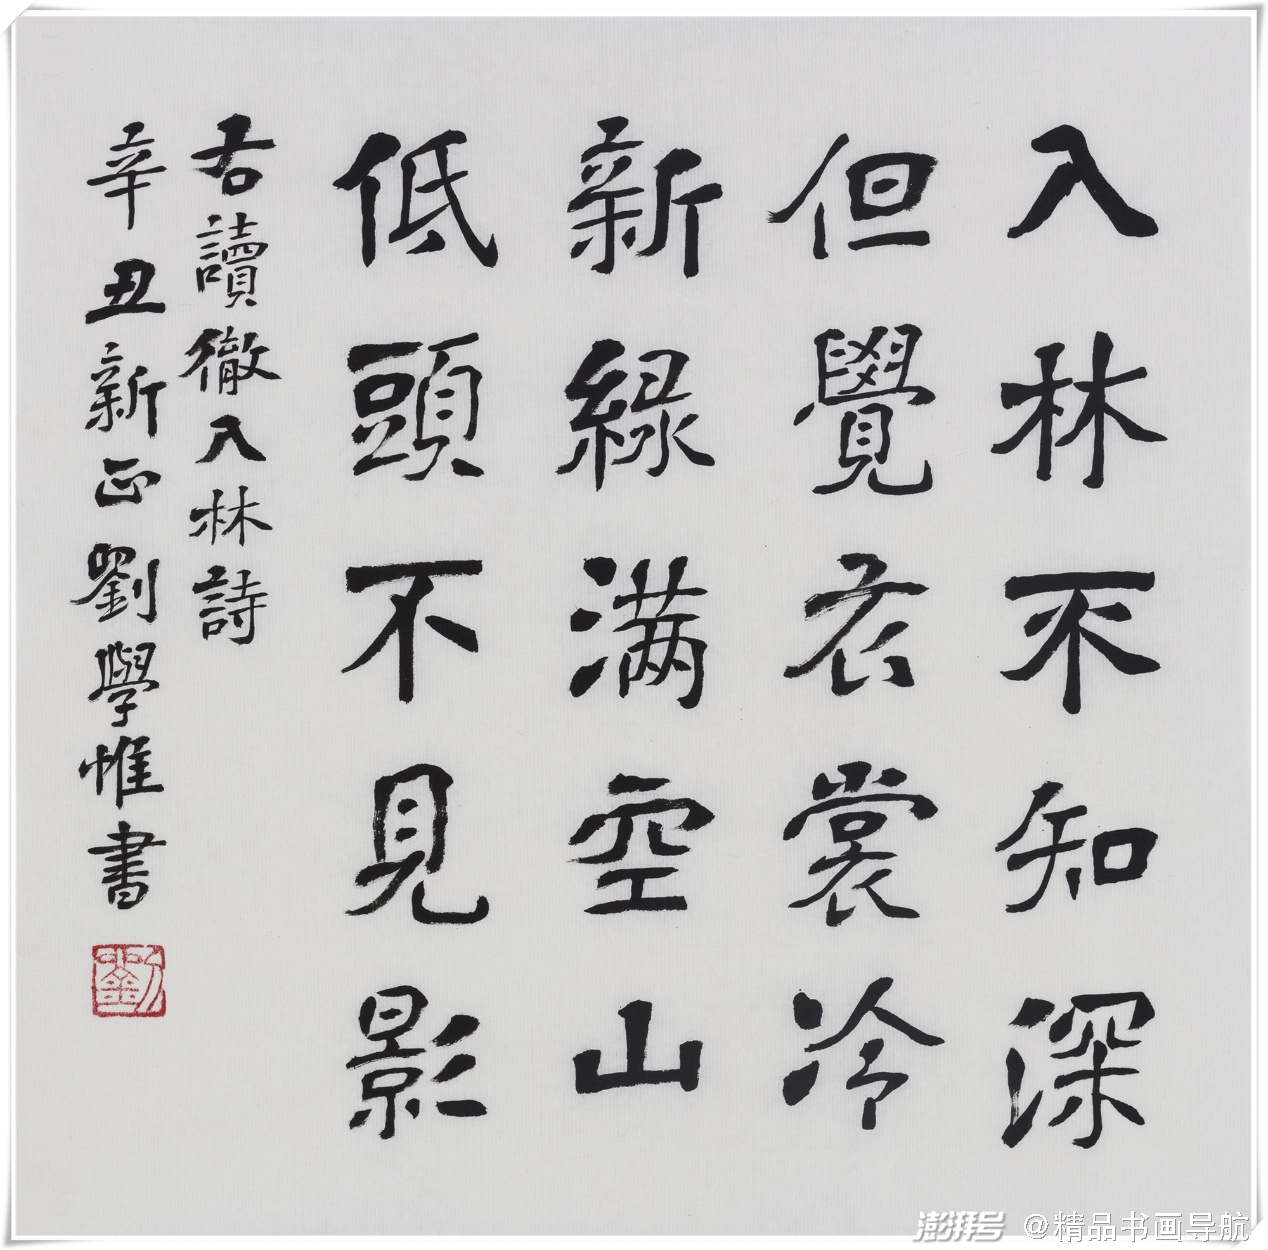 入林不知深
但覺衣裳冷
新緑满空山
低頭不見影
右讀徹入林詩
辛丑新正劉學惟書
澎湃号 @精品书画导航